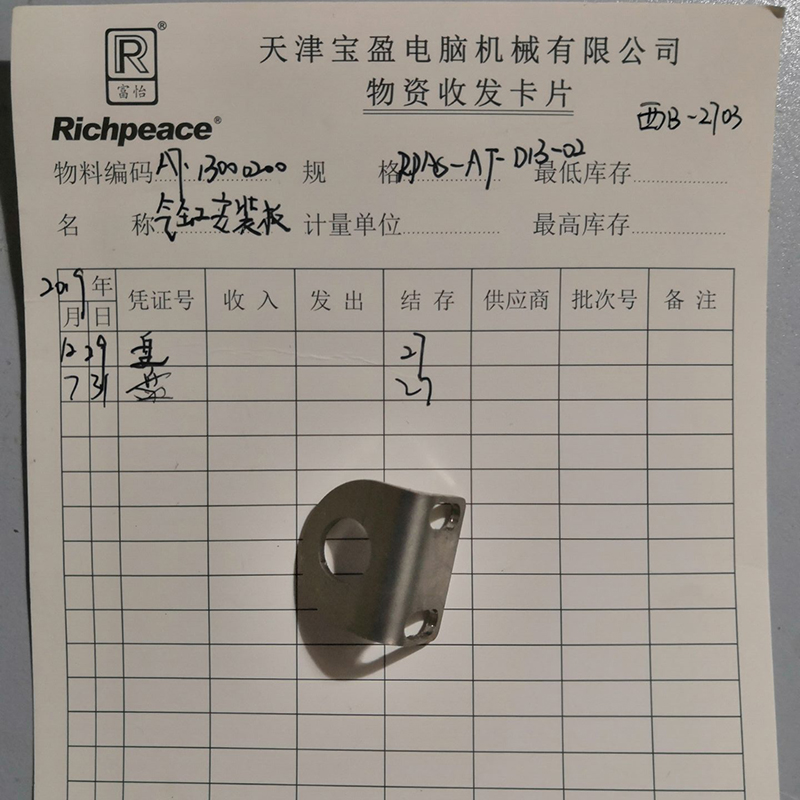 R®
富怡
Richpeace®
天津宝盈电脑机械有限公司
物资收发卡片
西B-2703
物料编码 AT.13000200 规格 RPAS-AT-D13-02 最低库存
名称 气缸安装板 计量单位 最高库存
2019年 凭证号 收入 发出 结存 供应商 批次号 备注
月 日
12 29 盘 27
7 31 盘 27